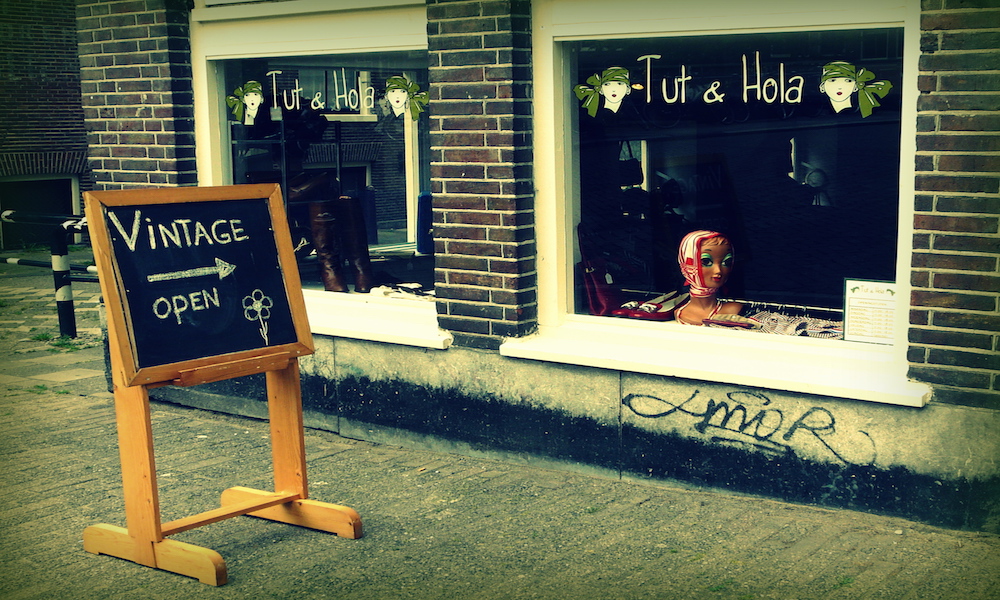 Tut & Hola
Tut & Hola
VINTAGE
OPEN
Tut & Hola